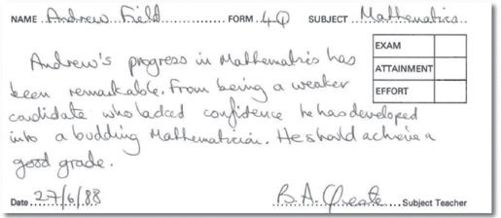 NAME Andrew Field FORM 4Q SUBJECT Mathematics
EXAM
ATTAINMENT
EFFORT
Andrew's progress in Mathematics has
been remarkable. From being a weaker
candidate who lacked confidence he has developed
into a budding Mathematician. He should achieve a
good grade.
Date 27/6/88 B. A. Subject Teacher